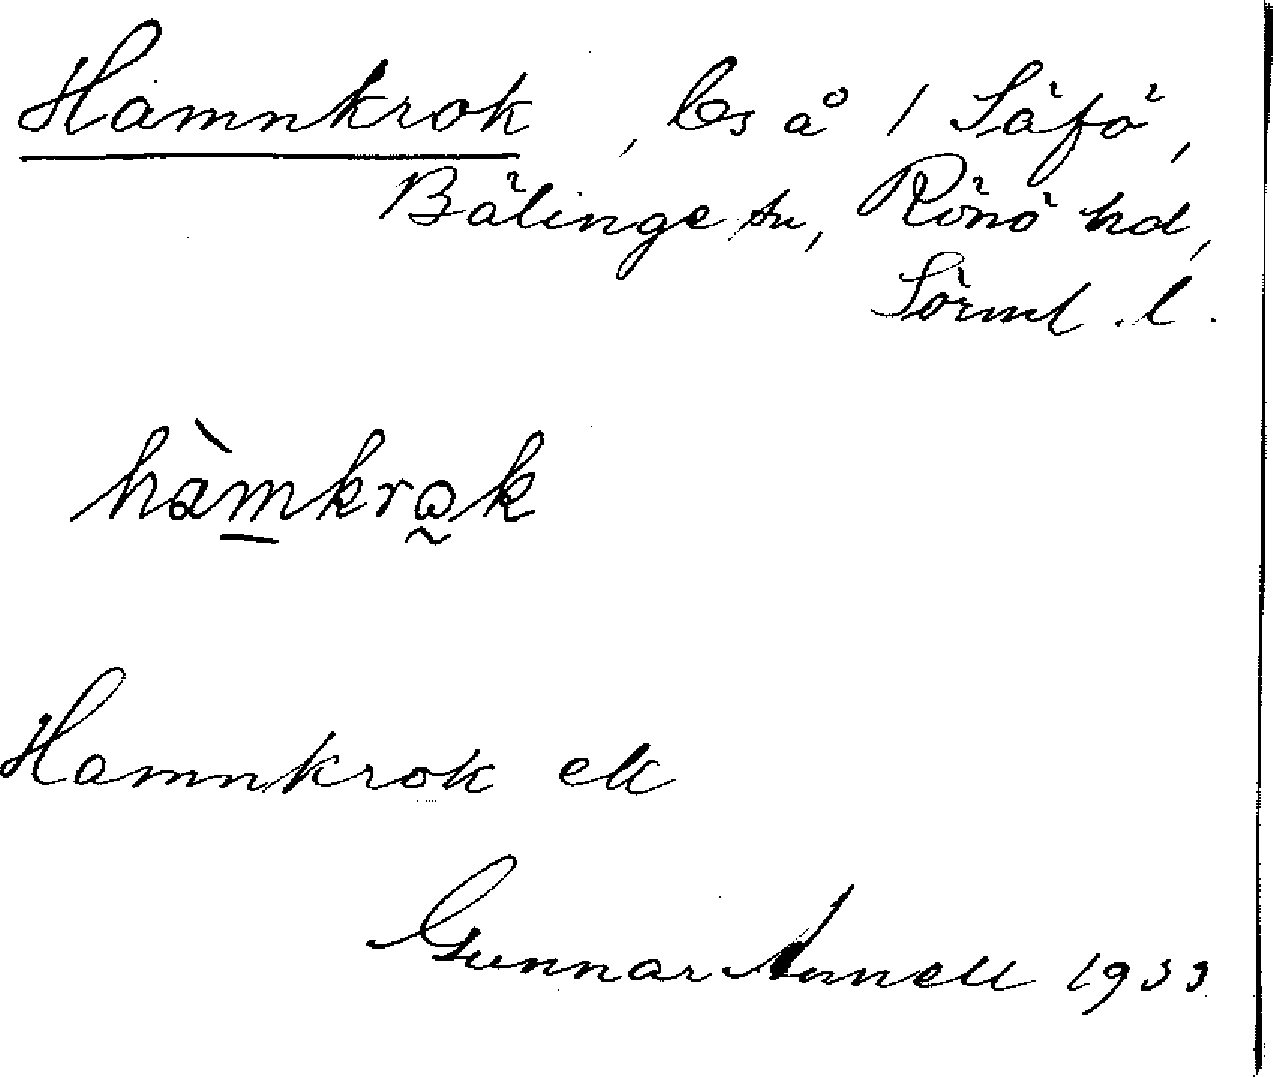 Hamnkrok, ls å 1 Säfö,
Bälinge sn, Rönö hd,
Sörml. l.
hàmkrɷk
Hamnkrok ek
Gunnar Annell 1933